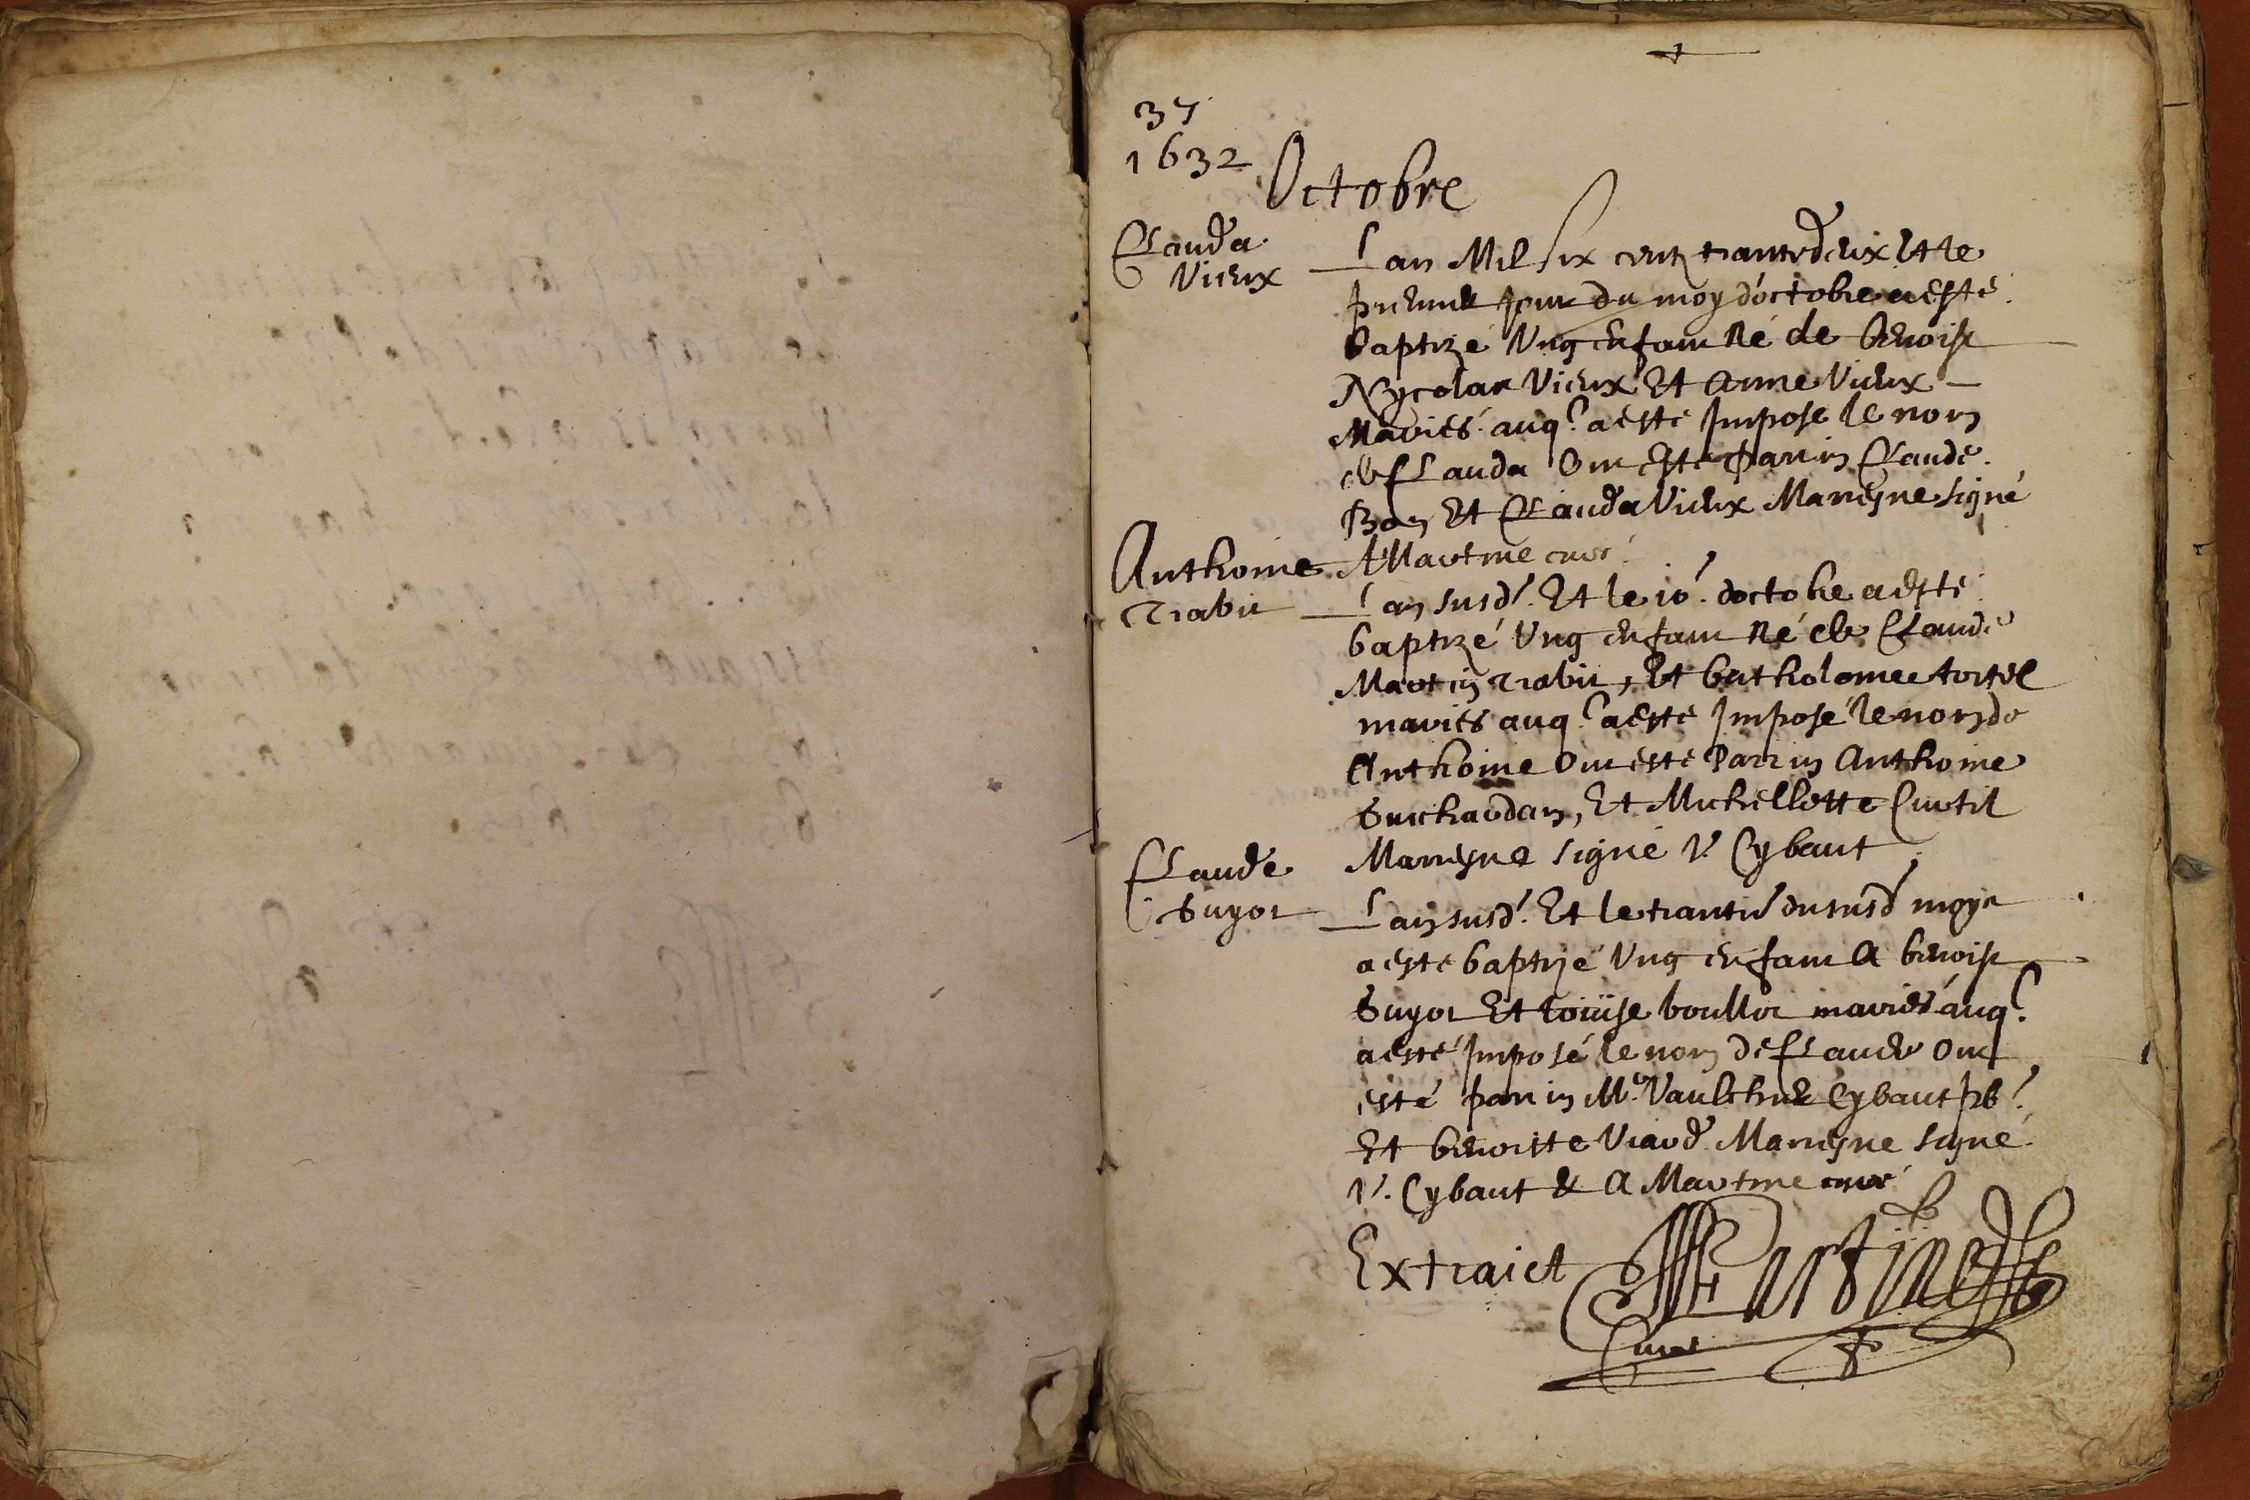 37
1632
Octobre
Clauda
Vieux
Lan Mil six centz trante deux Et le
premier Jour du moys d'octobre a esté
baptizé Ung enfant né de benoist
Nycolas Vieux Et Anne Vieux
Mariés auq.l a esté Imposé le nom
de Clauda Ont esté parrin Claude
Bon Et Clauda Vieux Marreyne signé
A Martine curé
Anthoine
Trabit
Lan susd. Et le 10. doctobre a esté
baptizé Ung enfant né de Claude
Martin Trabit, Et Bartholomee tortel
mariés auq.l a esté Imposé le nom de
Anthoine Ont esté Parrin Anthoine
Guichardan, Et Michellette Curtil
Marreyne signé V. Cybaut
Claude
Guyot
Lan susd. Et le trantie du susd moys
a esté baptizé Ung enfant A benoist
Guyot Et Louise boullot mariés auq.l
a esté Imposé le nom de Claude Ont
esté parrin M.e Vaulchier Cybaut pb.
Et benoiste Viard Marreyne signé
V. Cybaut & A Martine curé
Extraict Martine
Curé